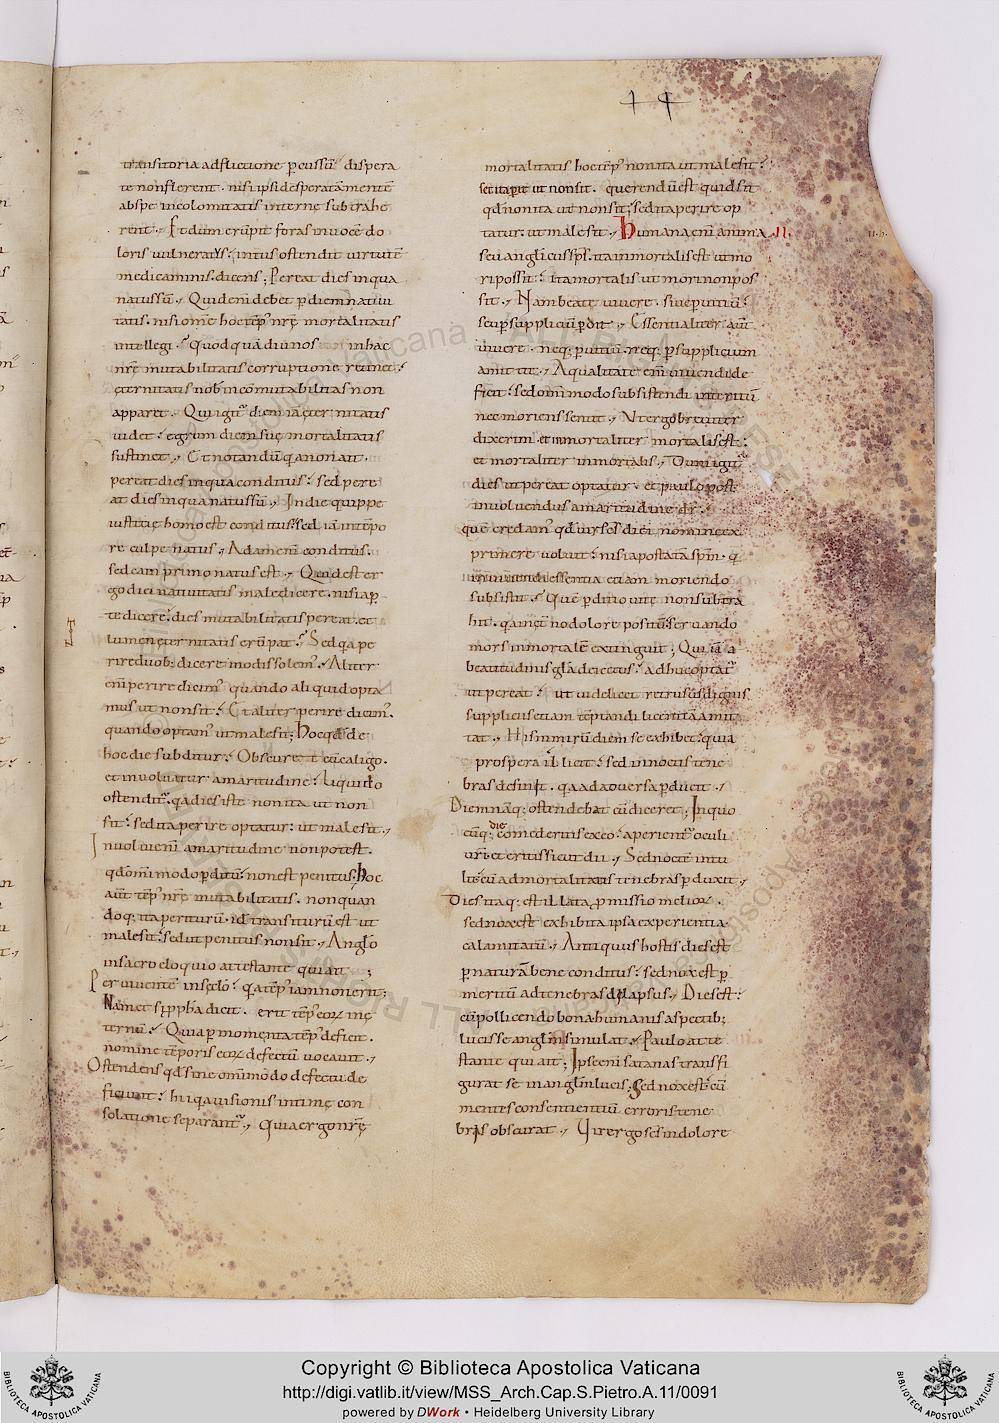 transitoria adflictione ꝑcussū dispera
te non flerent . nisi ipsi desperatā mentē
ab spe incolomitatis internę subtrahe
rent . Et dum erūpit foras in uocē do
loris uulneratus ; intus ostendit uirtutē
medicaminis . dicens ; Pereat dies in qua
natus sū . Quid enī debet ꝑ diem natiui
tatis . nisi omē hoc tēp nr̄ę mortalitatis
intellegi . quod quādiu nos in hac
nr̄ę mutabilitatis corruptione retinet :
ęternitatis nob̄ incōmutabilitas non
apparet . Qui igit̄ diem iā ęternitatis
uidet : egrum diem suę mortalitatis
sustinet . Et notandū q̄a non ait .
pereat dies in qua conditus : sed pere
at dies in qua natus sū . In die quippe
iustitię homo est conditus : sed iā in tēpo
re culpe natus . Adam enī conditus .
sed cain primo natus est . Quid est er
go diei natiuitatis maledicere . nisi aꝑ
te dicere : dies mutabilitatis pereat . et
lumen ęternitatis erūpat . Sed q̄a pe
rire duob; dicere modis solem . Aliter
enī perire dicim . quando aliquid opta
mus ut non sit : Et aliter perire dicim .
quando optam ut male sit ; hoc qd̄ de
hoc die subditur : Obscuret eū caligo .
et inuoluatur amaritudine : Liquido
ostendit . q̄a dies iste non ita ut non
sit : sed ita perire optatur : ut male sit .
Inuolui enī amaritudine non potest .
qd̄ omīmodo ꝑditū : non est penitus ; hoc
aut̄ tēp nr̄ę mutabilitatis . non quan
doq; ita periturū . id ÷ transiturū est ut
male sit : sed ut penitus non sit . Anglo
in sacro eloquio attestante qui ait ;
Per uiuentē in sc̄lo : q̄a tēp iam non erit :
Nam et si ꝓph̄a dicit . erit tēp eoꝝ in ę
ternū : Quia ꝑ momenta tēp deficit .
nomine tēporis eoꝝ defectū uocauit .
Ostendens qd̄ sine omīmodo defectu de
ficiunt : hi q̄ a uisionis intimę con
solatione separant̄ . Quia ergo nr̄ę
mortalitatis hoc tēp non ita ut male sit :
set ita perit ut non sit . querendū est quid sit
qd̄ non ita ut non sit : sed ita perire op
tatur . ut male sit . humana enī anima II.
seu anglicus sps̄ . ita inmortalis est ut mo
ri possit : ita mortalis ut mori non pos
sit . Nam beate uiuere . siue ꝑ uitiū :
seu ꝑ suppliciū ꝑdit . Essentialiter aut̄
uiuere . neq; ꝑ uitiū . neq; ꝑ supplicium
amittit . A qualitate enī uiuendi de
ficit : sed omīmodo subsistendi interitū
nec moriens sentit . Vt ergo breuiter
dixerim . et inmortaliter mortalis est :
et mortaliter inmortalis . Dum igit̄
dies ut pereat optatur . et paulo post
inuoluendus amaritudine dr̄ :
quē credam qd̄ uir scs̄ diei nomine ex
primere uoluit : nisi apostatā spm̄ . q̄
in uiuendi essentia etiam moriendo
subsistit . Quē ꝑditio uitę non subtra
hit . q̄a in ęt̄no dolore positū : seruando
mors inmortalē extinguit ; Qui iā a
beatitudinis gl̄a deiectus : adhuc optat̄
ut pereat : ut uidelicet retrusus dignis
suppliciis etiam tēptandi licentiā amit
tat . His nimirū diem se exhibet : quia
prospera illicit : sed in noctis tene
bras desinit . q̄a ad aduersa ꝑducit .
Diem nāq; ostendebat cū diceret ; In quo
cūq; die comederitis ex eo : aperient̄ oculi
uri̅ et eritis sicut dii . Sed noctē intu
lit : cū ad mortalitatis tenebras ꝑduxit .
Dies itaq; est illata ꝓmissio melioꝝ .
sed nox est exhibita ipsa experientia
calamitatū . Antiquus hostis dies est
ꝑ naturā bene conditus : sed nox est ꝑ
meritū ad tenebras delapsus . Dies est :
cū pollicendo bona humanis aspectib;
lucis se anglm̄ simulat . Paulo atte
stante qui ait ; Ipse enī satanas transfi
gurat se in anglm̄ lucis ; Sed nox est : cū
mentes consentientiū erroris tene
bris obscurat . Vir ergo scs̄ in dolore
Copyright © Biblioteca Apostolica Vaticana
http://digi.vatlib.it/view/MSS_Arch.Cap.S.Pietro.A.11/0091
powered by DWork • Heidelberg University Library
BIBLIOTECA APOSTOLICA VATICANA
BIBLIOTECA APOSTOLICA VATICANA